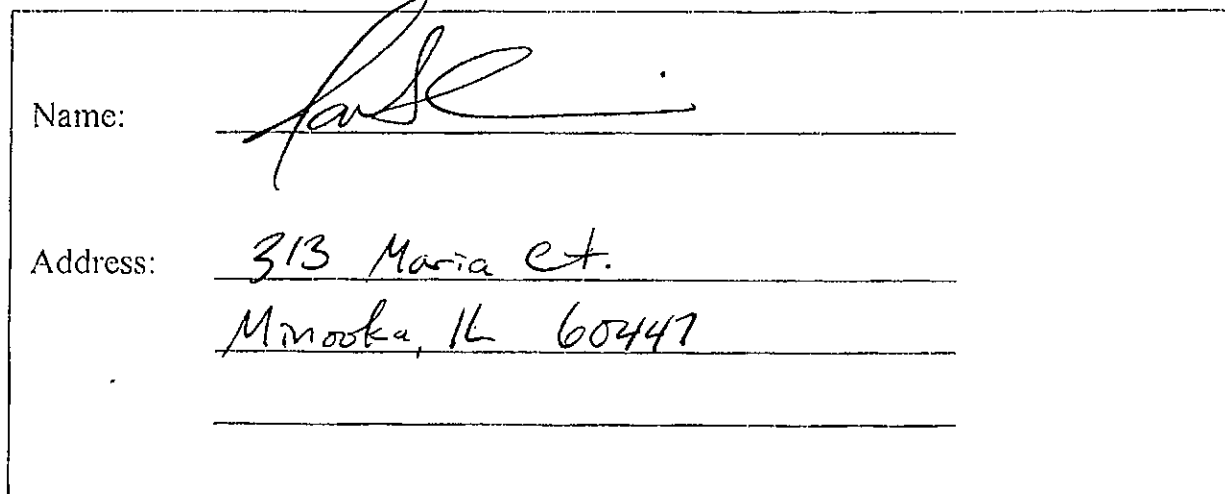 Name:
Address: 313 Maria Ct.
Minooka, IL 60447